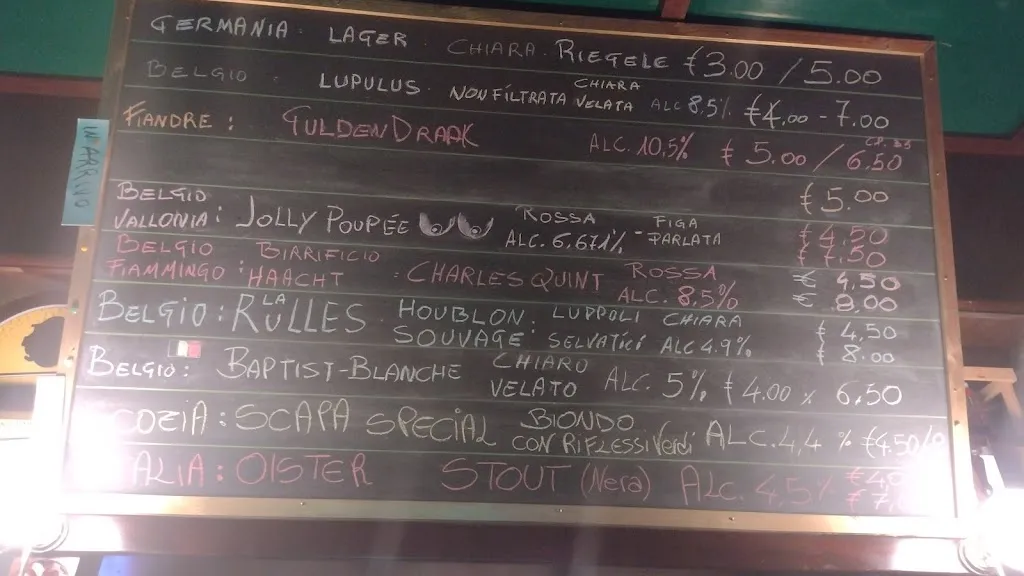 GERMANIA · LAGER · CHIARA · RIEGELE €3.00 / 5.00
BELGIO · LUPULUS · NON FILTRATA CHIARA VELATA ALC 8,5% €4.00 - 7.00
FIANDRE : GULDENDRAAK ALC. 10,5% € 5.00 / 6.50
€ 5.00
BELGIO VALLONIA : JOLLY POUPÉE ROSSA ALC. 6,671% - FIGA PARLATA € 4.50 € 7.50
BELGIO FIAMMINGO : BIRRIFICIO HAACHT · CHARLES QUINT ROSSA ALC. 8.5% € 4,50 € 8,00
BELGIO : LA RULLES · HOUBLON SOUVAGE : LUPPOLI SELVATICI CHIARA ALC 4.9% € 4,50 € 8.00
BELGIO : BAPTIST-BLANCHE CHIARO VELATO ALC. 5% € 4.00 % 6,50
COZIA : SCAPA SPECIAL BIONDO CON RIFLESSI Verdi ALC. 4,4 % €4.50/
ALIA : OISTER STOUT (Nera) ALC. 4,5%